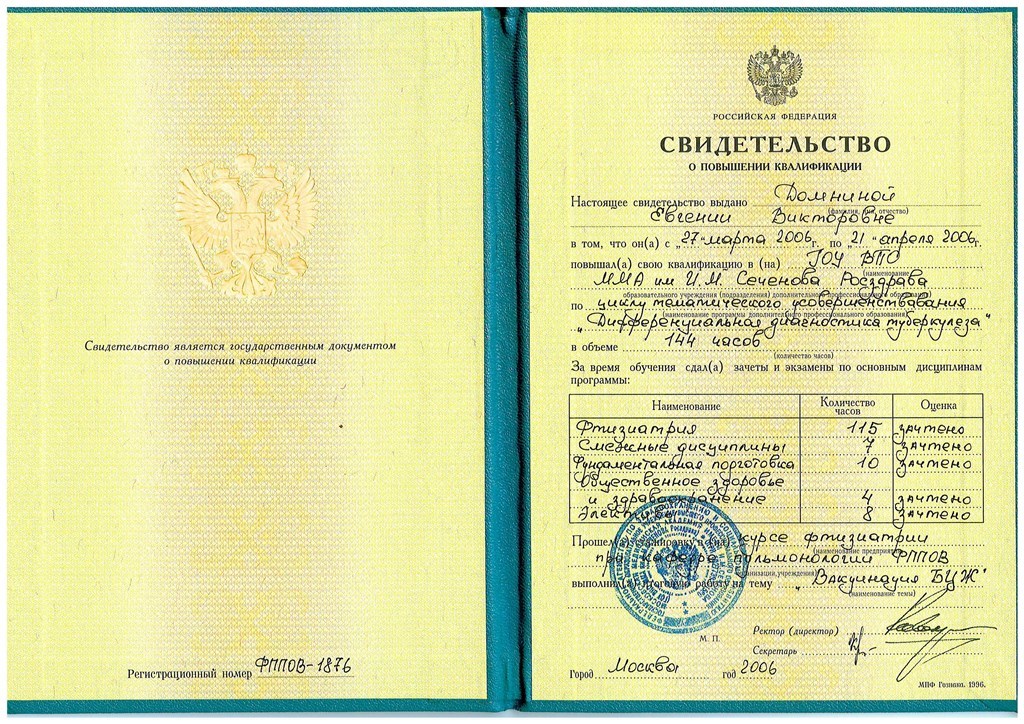 Свидетельство является государственным документом
о повышении квалификации
Регистрационный номер ФППОВ-1876
РОССИЙСКАЯ ФЕДЕРАЦИЯ
СВИДЕТЕЛЬСТВО
О ПОВЫШЕНИИ КВАЛИФИКАЦИИ
Настоящее свидетельство выдано Домниной
(фамилия, имя, отчество)
Евгении Викторовне
в том, что он(а) с „27" марта 2006 г. по „21" апреля 2006г.
повышал(а) свою квалификацию в (на) ГОУ ВПО
(наименование
ММА им И.М. Сеченова Росздрава
образовательного учреждения (подразделения) дополнительного профессионального образования)
по циклу тематического усовершенствования
(наименование программы дополнительного профессионального образования)
„Дифференциальная диагностика туберкулеза"
в объеме 144 часов
(количество часов)
За время обучения сдал(а) зачеты и экзамены по основным дисциплинам
программы:
Наименование Количество часов Оценка
Фтизиатрия 115 зачтено
Смежные дисциплины 7 зачтено
Фундаментальная порготовка 10 зачтено
Общественное здоровье
и здравоохранение 4 зачтено
Элективы 8 зачтено
Прошел(а) стажировку в (на) курсе фтизиатрии
(наименование предприятия,
при кафедре пульмонологии ФППОВ
организации, учреждения)
выполнил(а) итоговую работу на тему „Вакцинация БЦЖ"
(наименование темы)
М. П.
Ректор (директор)
Секретарь
Город Москва год 2006
МПФ Гознака. 1996.